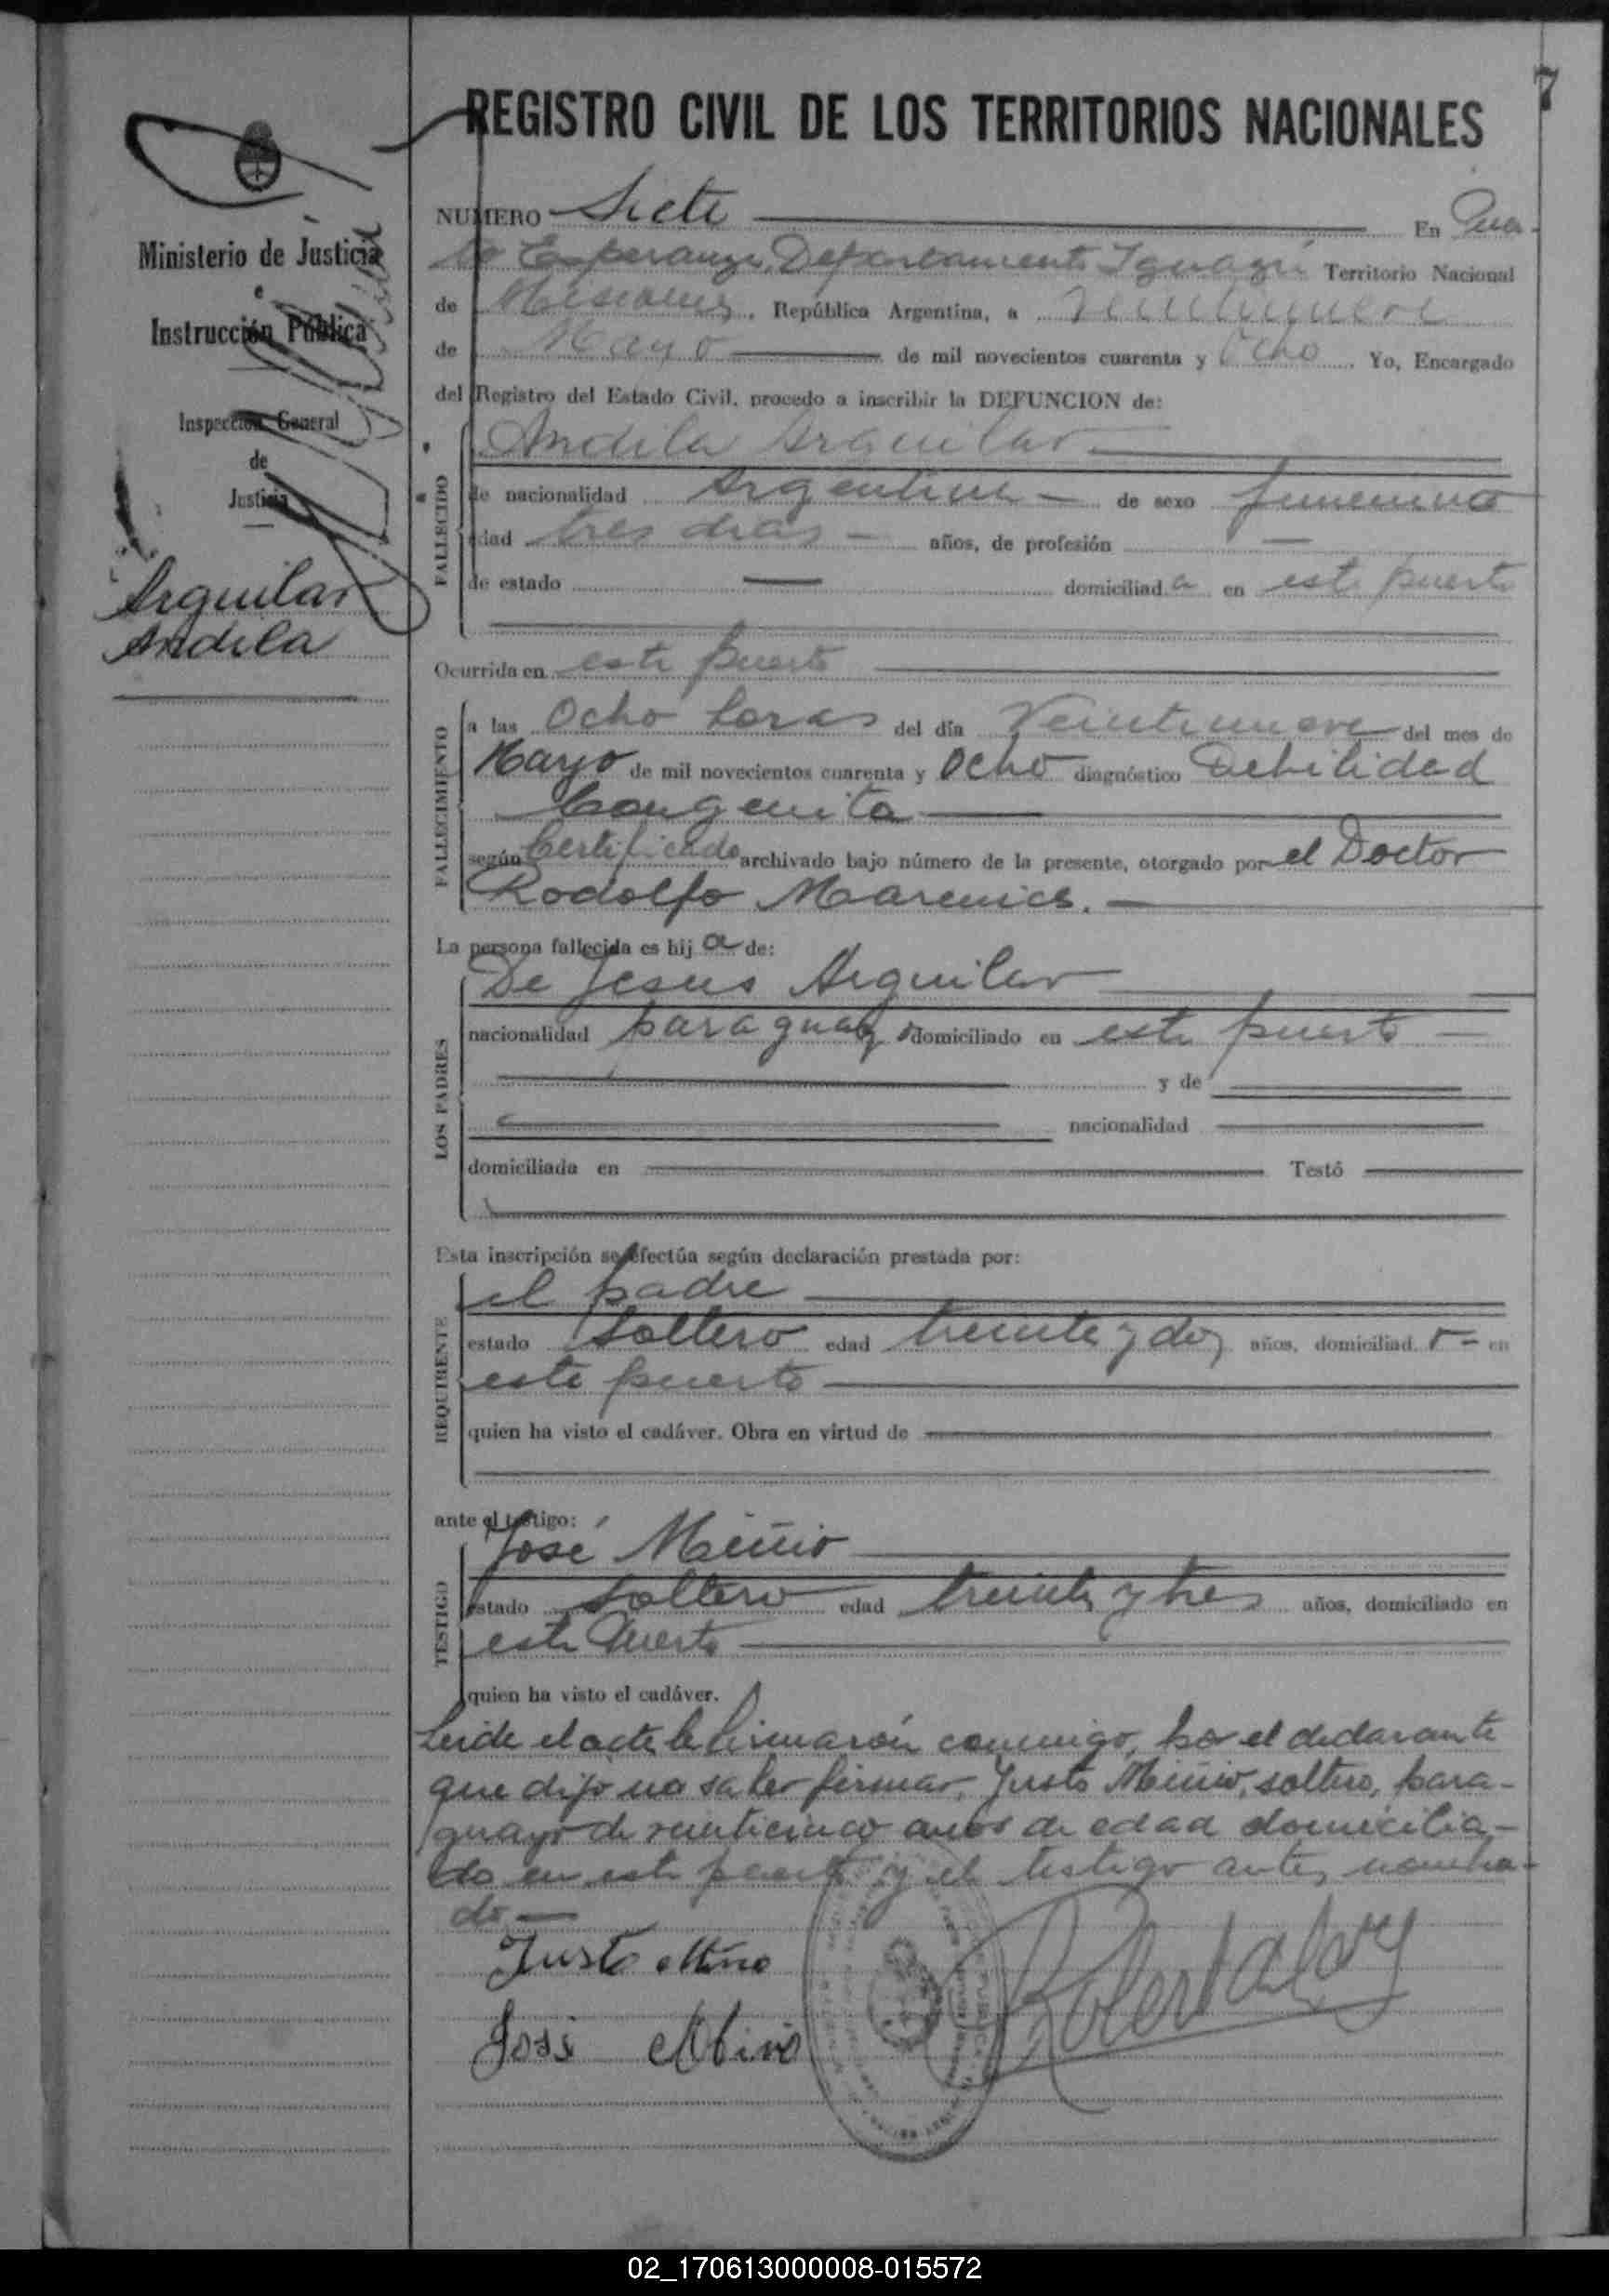 7
REGISTRO CIVIL DE LOS TERRITORIOS NACIONALES
Ministerio de Justicia
e
Instrucción Pública
Inspección General
de
Justicia
Arguilar
Andila
NUMERO Siete En Puer-
to Esperanza, Departamento Iguazú Territorio Nacional
de Misiones, República Argentina, a veintinueve
de Mayo de mil novecientos cuarenta y Ocho. Yo, Encargado
del Registro del Estado Civil, procedo a inscribir la DEFUNCION de:
FALLECIDO
Andila Arguilar
de nacionalidad Argentina de sexo femenino
edad tres dias años, de profesión —
de estado — domiciliad a en este puerto
Ocurrida en este puerto
FALLECIMIENTO
a las Ocho horas del día Veintinueve del mes de
Mayo de mil novecientos cuarenta y Ocho diagnóstico Debilidad
Congenita
según Certificado archivado bajo número de la presente, otorgado por el Doctor
Rodolfo
La persona fallecida es hij a de:
LOS PADRES
De Jesus Arguilar
nacionalidad paraguayo domiciliado en este puerto
y de
nacionalidad
domiciliada en Testó
Esta inscripción se efectúa según declaración prestada por:
REQUIRENTE
el padre
estado Soltero edad treinta y dos años, domiciliad o en
este puerto
quien ha visto el cadáver. Obra en virtud de
ante el testigo:
TESTIGO
José Miño
estado Soltero edad treinta y tres años, domiciliado en
este Puerto
quien ha visto el cadáver.
Leida el acta la firmarón conmigo, por el declarante
que dijo no saber firmar, Justo Miño, soltero, para-
guayo de veinticinco años de edad domicilia-
do en este puerto y el testigo antes nombra-
do.—
Justo Miño
José Miño
02_170613000008-015572